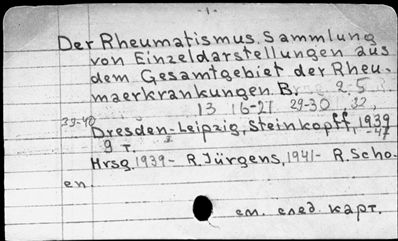 -1-
Der Rheumatismus. Sammlung
von Einzeldarstellungen aus
dem Gesamtgebiet der Rheu-
maerkrankungen B. 2-5
13 16-21 29-30, 32,
33-40
Dresden-Leipzig, Steinkopff, 1939
-47
9 т.
Hrsg. 1939- R. Jürgens, 1941- R. Scho-
en.
см. след. карт.